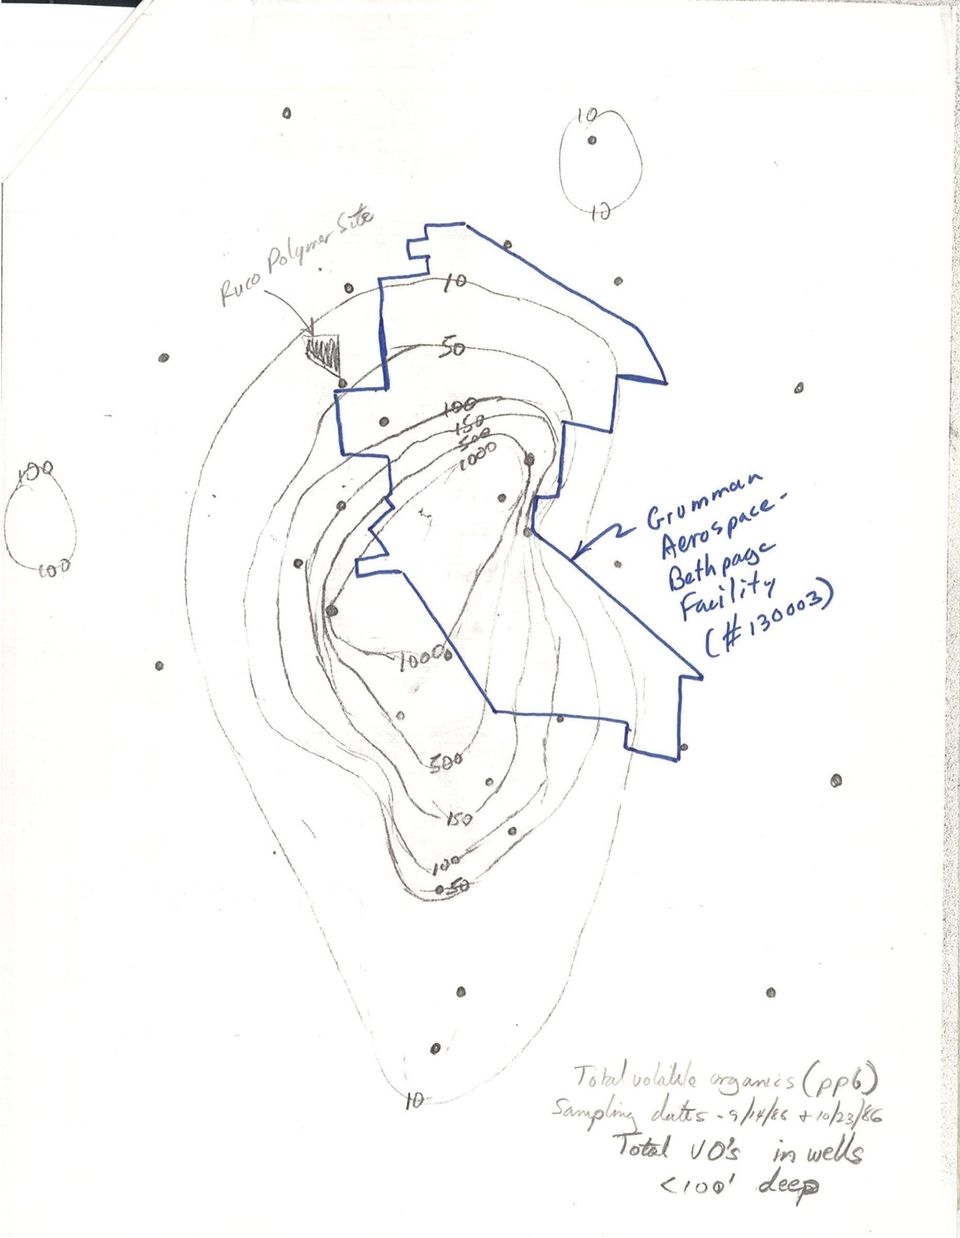 10
10
Ruco Polymer Site
10
50
100
150
500
1000
100
100
Grumman
Aerospace-
Bethpage
Facility
(#130003)
1000
500
150
100
50
10
Total volatile organics (ppb)
Sampling dates - 9/14/86 + 10/23/86
Total VO's in wells
<100' deep